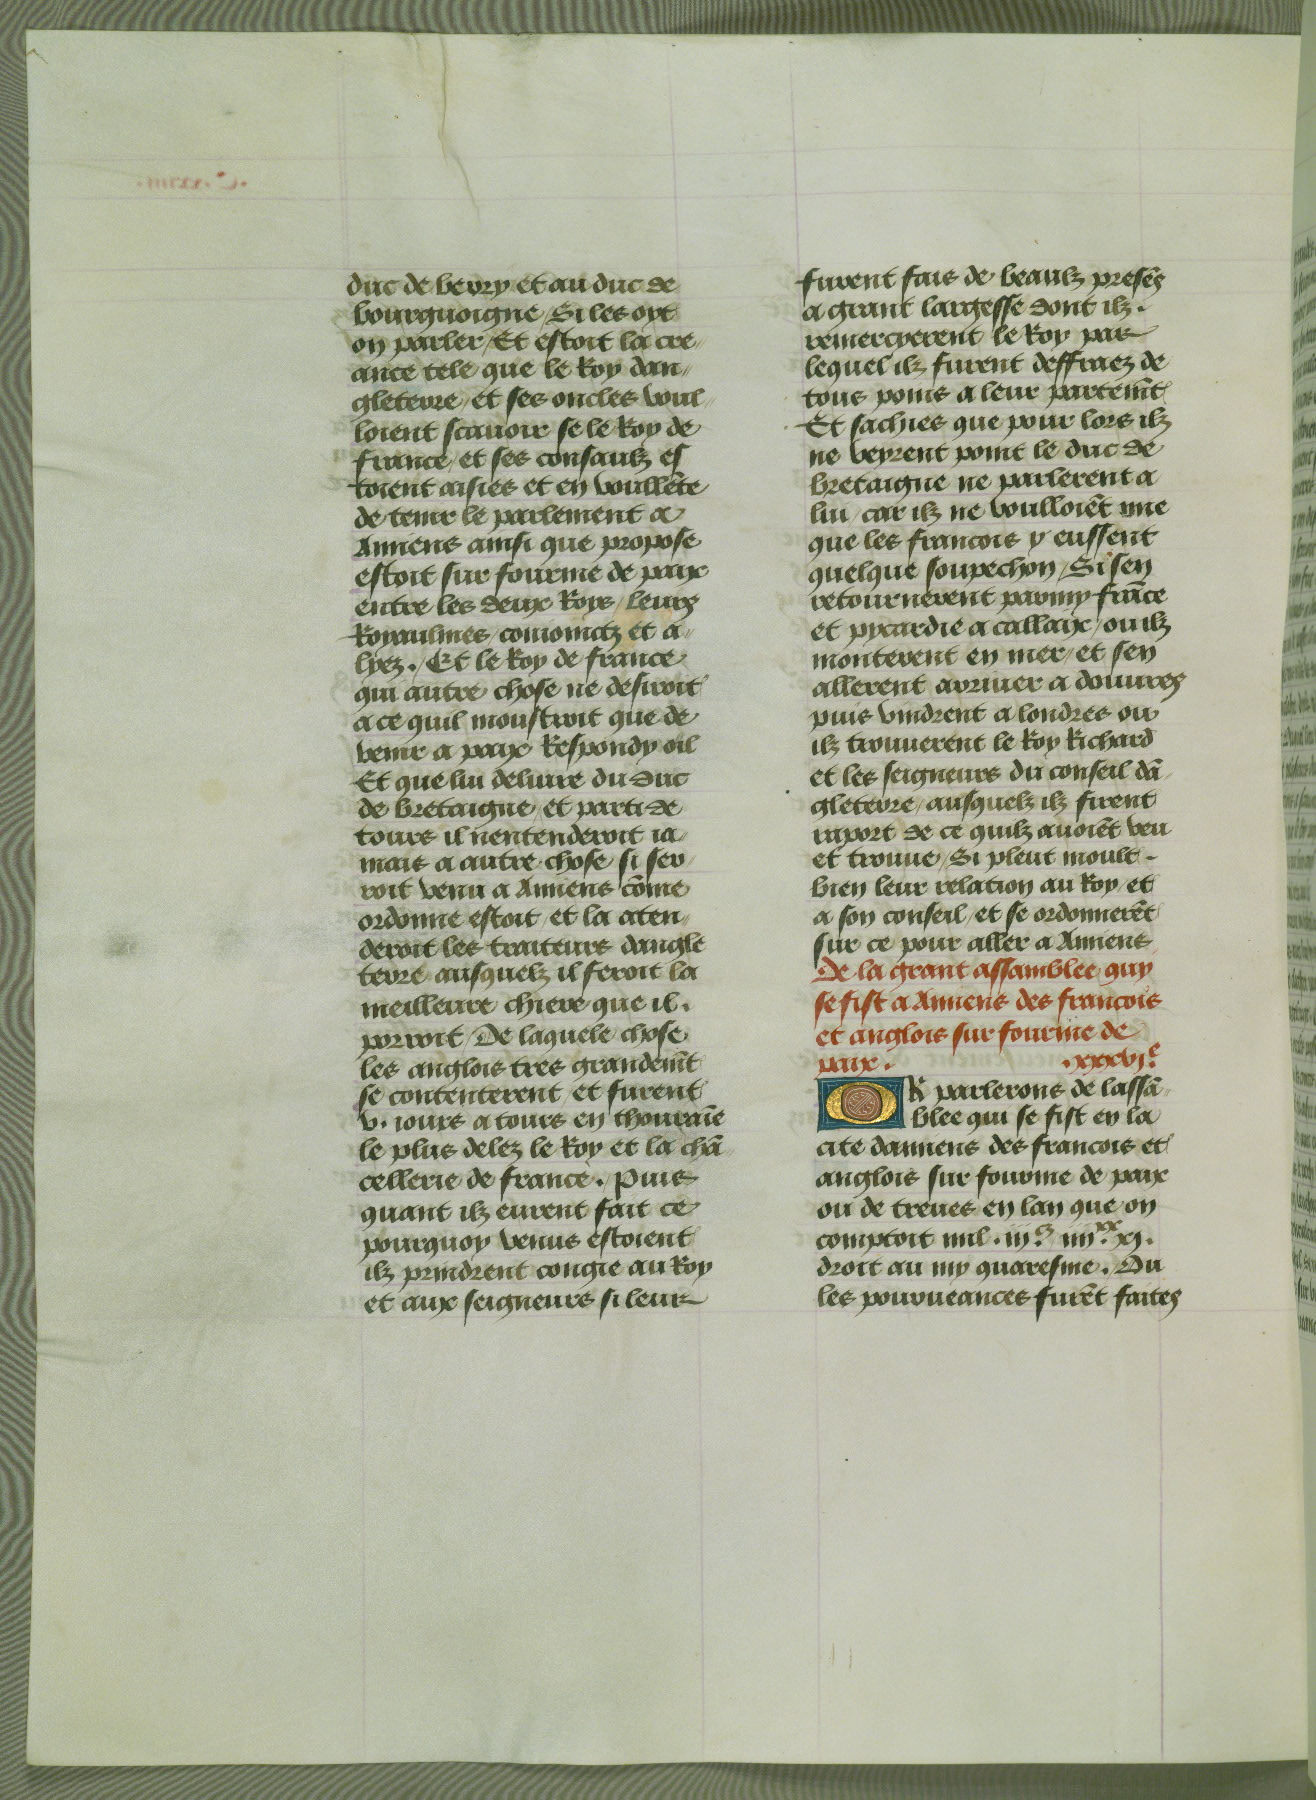 duc de berry et au duc de
bourguoigne / Si les oyt
on parler / Et estoit la cre-
ance tele que le Roy dan-
gleterre / et ses oncles voul-
loient scauoir se le Roy de
france / et ses consaulz es
toient aisies et en voullēte
de tenir le parlement a
Amiens ainsi que propose
estoit sur fourme de paix
entre les deux Roys / leurs
Royaulmes / conioinctz et a-
lyez . / Et le Roy de france
qui autre chose ne desiroit
a ce quil moustroit que de
venir a paix Respondy oil
Et que lui deliure du duc
de bretaigne / et parti de
tours il nentenderoit ia-
mais a autre chose si ser-
roit venu a Amiens cōme
ordonne estoit / et la aten-
deroit les traiteurs dangle
terre ausquelz il feroit la
meilleure chiere que il .
porroit / De laquele chose
les anglois tres grandemt̄
se contenterent / et furent
v. iours a tours en thouraīe
le plus delez le Roy et la chā
cellerie de france . Puis
quant ilz eurent fait ce
pourquoy venus estoient
ilz prindrent congie au Roy
et aux seigneurs si leur
furent fais de beaulz presēs
a grant largesse dont ilz .
remercyerent le Roy par
lequel ilz furent deffraez de
tous poins a leur partemt̄
Et sachies que pour lors ilz
ne veyrent point le duc de
bretaigne ne parlerent a
lui / car ilz ne voulloiēt mie
que les francois y eussent
quelque soupechon / Si sen
retournerent parmy frāce
et pycardie a callaix / ou ilz
monterent en mer / et sen
allerent arriuer a douures
puis vindrent a londres ou
ilz trouuerent le Roy Richard
et les seigneurs du conseil dā-
gleterre / ausquelz ilz firent
raport de ce quilz auoiēt veu
et trouue / Si pleut moult .
bien leur relation au Roy / et
a son conseil / et se ordonnerēt
sur ce pour aller a Amiens
De la grant assamblee quy
se fist a Amiens des francois
et anglois sur fourme de
paix . .xxxvj.e
OR parlerons de lassā-
blee qui se fist en la
cite damiens des francois et
anglois sur fourme de paix
ou de treues en lan que on
comptoit mil . iij.c iiij.xx xj.
droit au my quaresme . Ou
les pourueances furēt faites